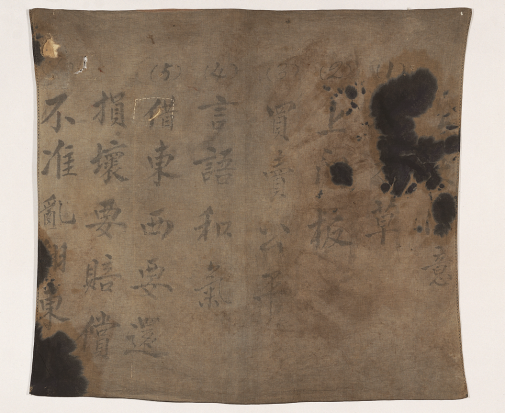 意
(1) 草
(2) 上 板
買賣公平
(4) 言語和氣
(5) 借東西要還
損壞要賠償
不准亂用東